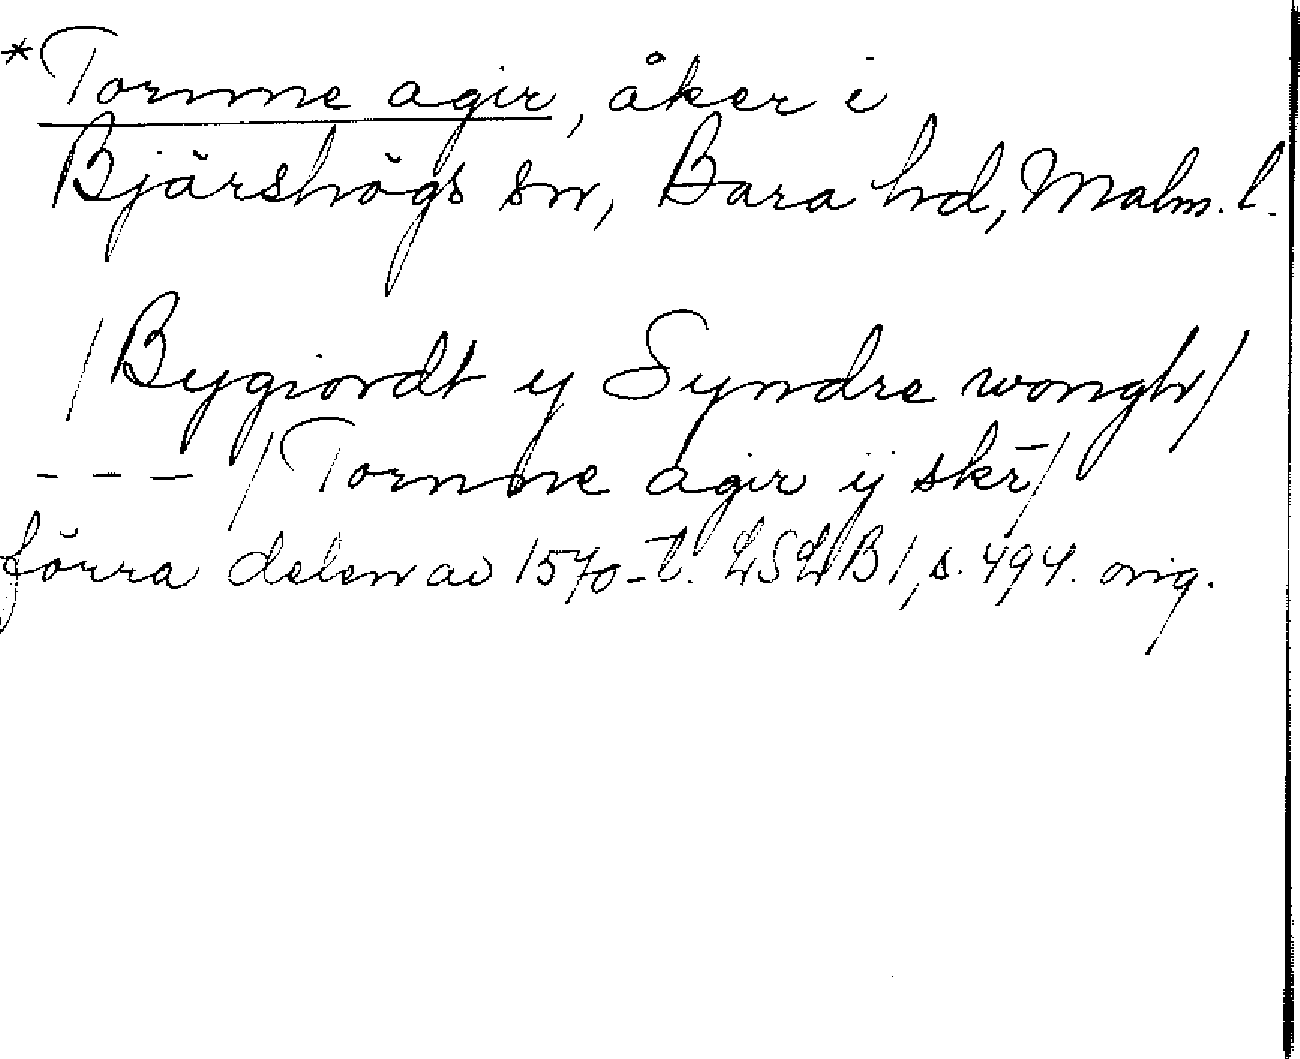 *Tornne agir, åker i
Bjärshögs sn, Bara hd, Malm. l.
/Bygiordt y Syndre wongh/
- - - /Tornne agir ij skr̄/
förra delen av 1570-t. LSLB 1, s. 494. orig.